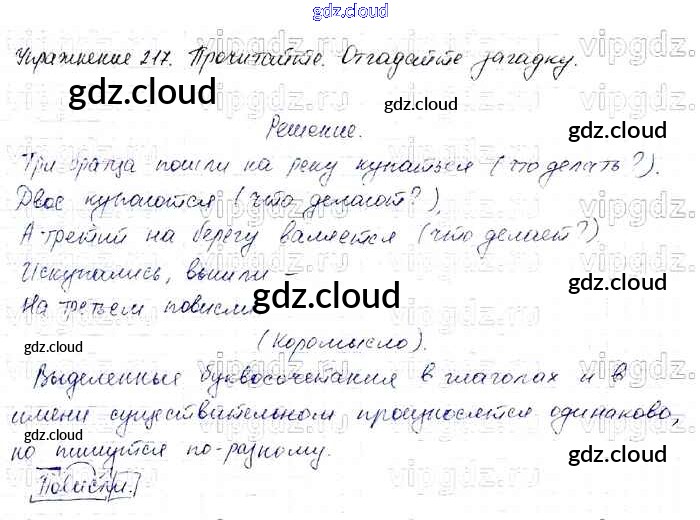 gdz.cloud
Упражнение 217. Прочитайте. Отгадайте загадку.
gdz.cloud
gdz.cloud
Решение.
gdz.cloud
Три братца пошли на реку купаться (что делать?).
Двое купаются (что делают?),
А третий на берегу валяется (что делает?)
Искупались, вышли –
gdz.cloud
На третьем повисли
gdz.cloud
(Коромысло).
gdz.cloud
gdz.cloud
Выделенные буквосочетания в глаголах и в
имени существительном произносятся одинаково,
но пишутся по-разному.
gdz.cloud
gdz.cloud